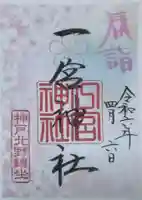 一宮神社
令和六年
四月六日
一宮神社
神戸北野鎮坐